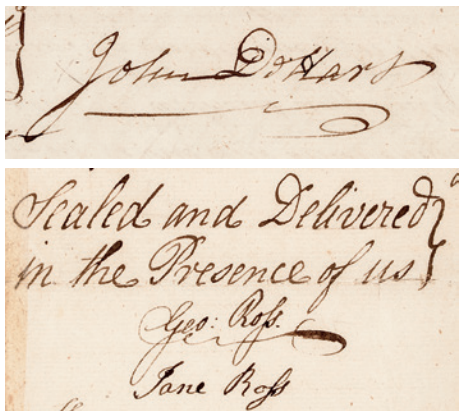 John De Hart
Sealed and Delivered
in the Presence of us
Geo: Ross.
Jane Ross